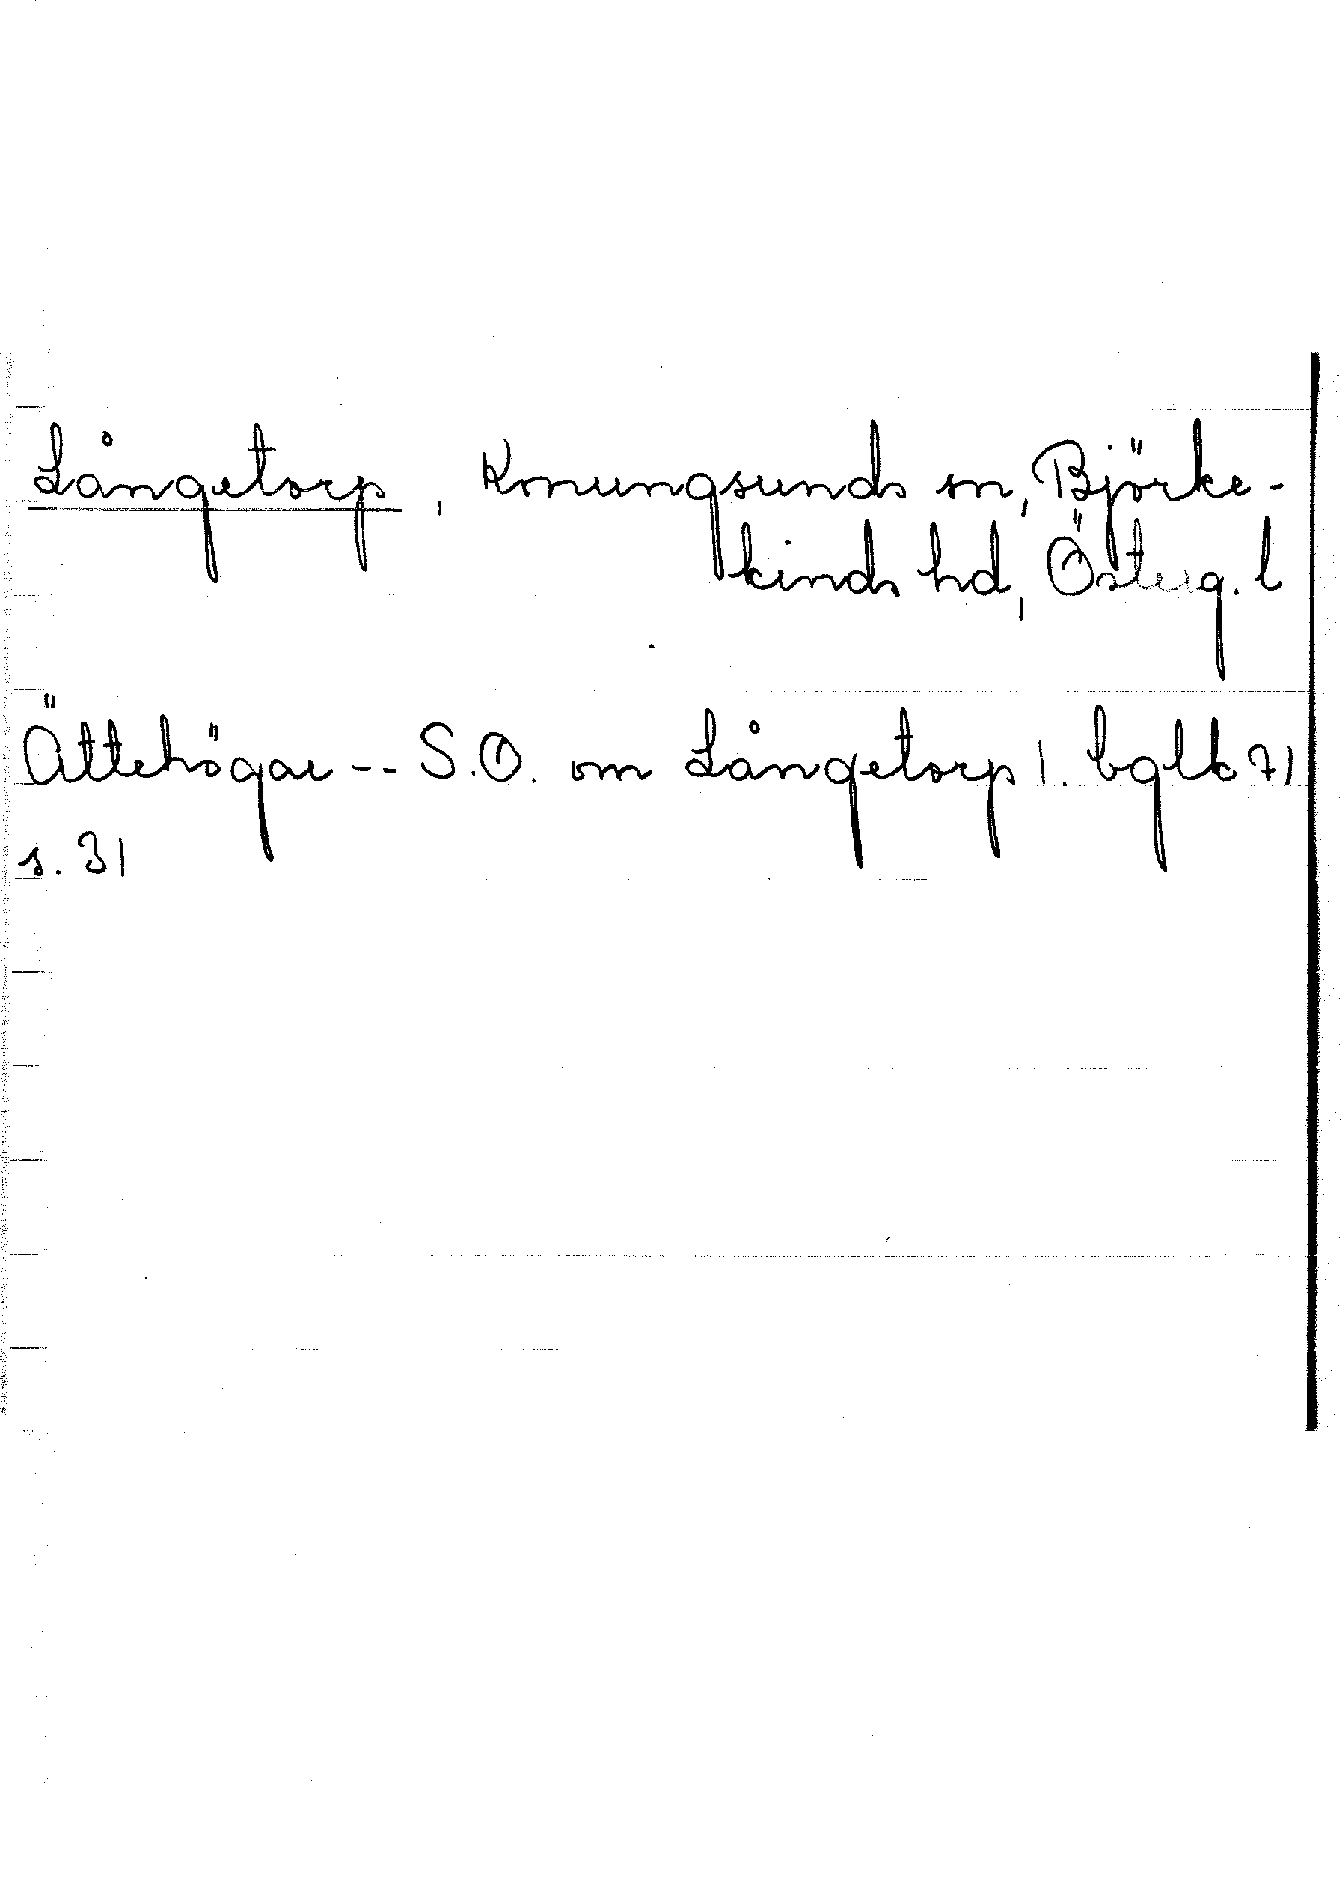 Långetorp, Konungsunds sn, Björke-
kinds hd, Österg. l
Ättehögar -- S.O. om Långetorp l. bglb 71
s. 31